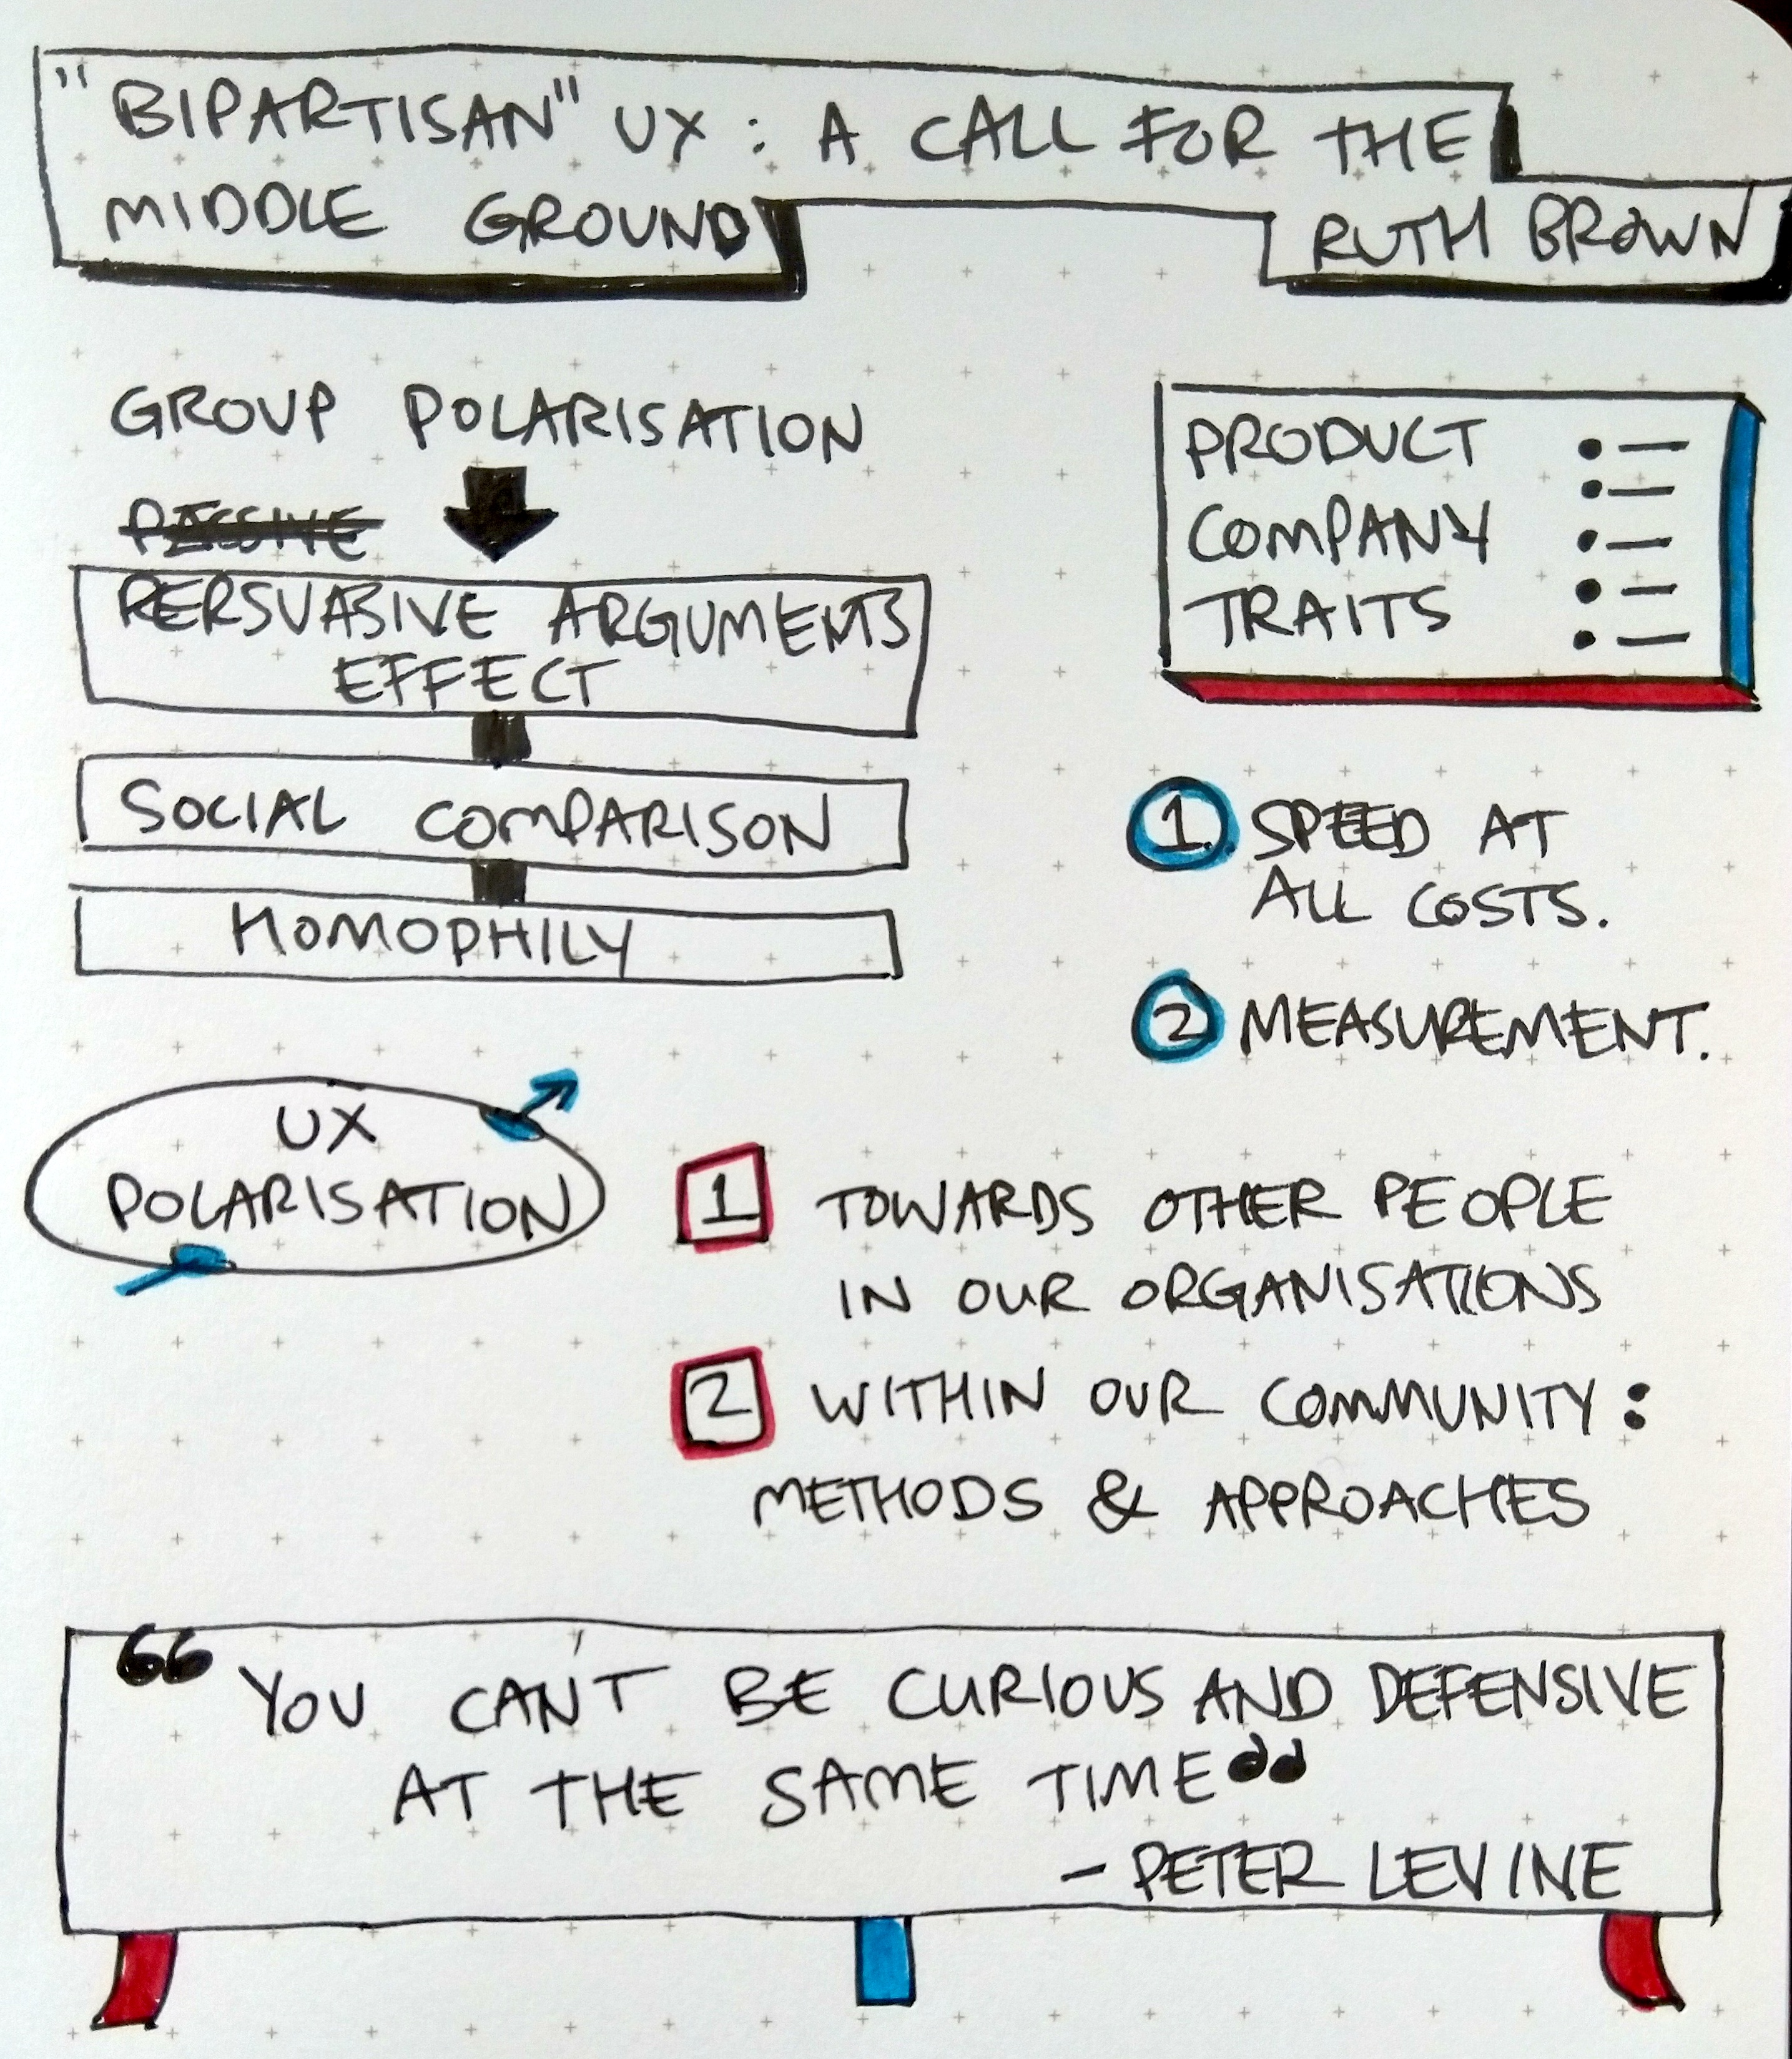 "BIPARTISAN" UX: A CALL FOR THE
MIDDLE GROUND
RUTH BROWN
GROUP POLARISATION
PASSIVE
PERSUASIVE ARGUMENTS
EFFECT
SOCIAL COMPARISON
HOMOPHILY
PRODUCT
COMPANY
TRAITS
1. SPEED AT
ALL COSTS.
2 MEASUREMENT.
UX
POLARISATION
1 TOWARDS OTHER PEOPLE
IN OUR ORGANISATIONS
2 WITHIN OUR COMMUNITY:
METHODS & APPROACHES
“YOU CAN'T BE CURIOUS AND DEFENSIVE
AT THE SAME TIME”
- PETER LEVINE